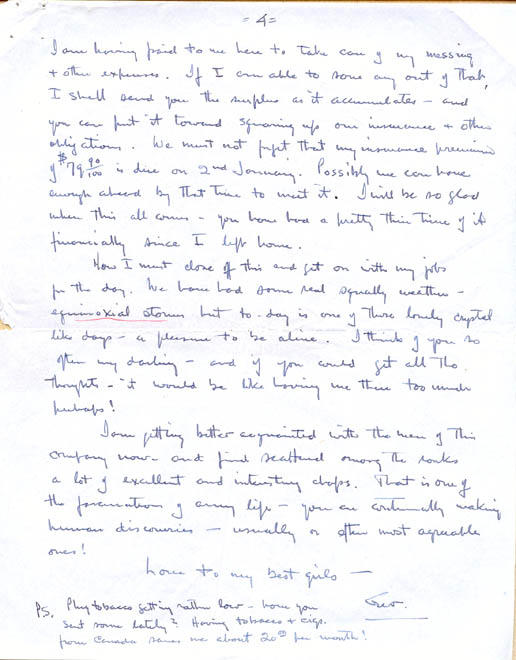 = 4 =
I am having paid to me here to take care of my messing
+ other expenses. If I am able to save any out of that,
I shall send you the surplus as it accumulates - and
you can put it toward squaring up our insurance + other
obligations. We must not forget that my insurance premium
of $79 90/100 is due on 2nd January. Possibly we can have
enough ahead by that time to meet it. I will be so glad
when this all comes - you have had a pretty thin time of it
financially since I left home.
Now I must close off this and get on with my jobs
for the day. We have had some real squally weather -
equinoxial storms but to-day is one of those lovely crystal
like days - a pleasure to be alive. I think of you so
often my darling - and if you could get all the
thoughts - it would be like having me there too much
perhaps!
I am getting better acquainted with the men of this
company now - and find scattered among the ranks
a lot of excellent and interesting chaps. That is one of
the fascinations of army life - you are continually making
human discoveries - usually or often most agreeable
ones!
Love to my best girls -
Geo.
PS. Plug tobacco getting rather low - have you
sent some lately? Having tobacco + cigs.
from Canada saves me about 20⁰⁰ per month!